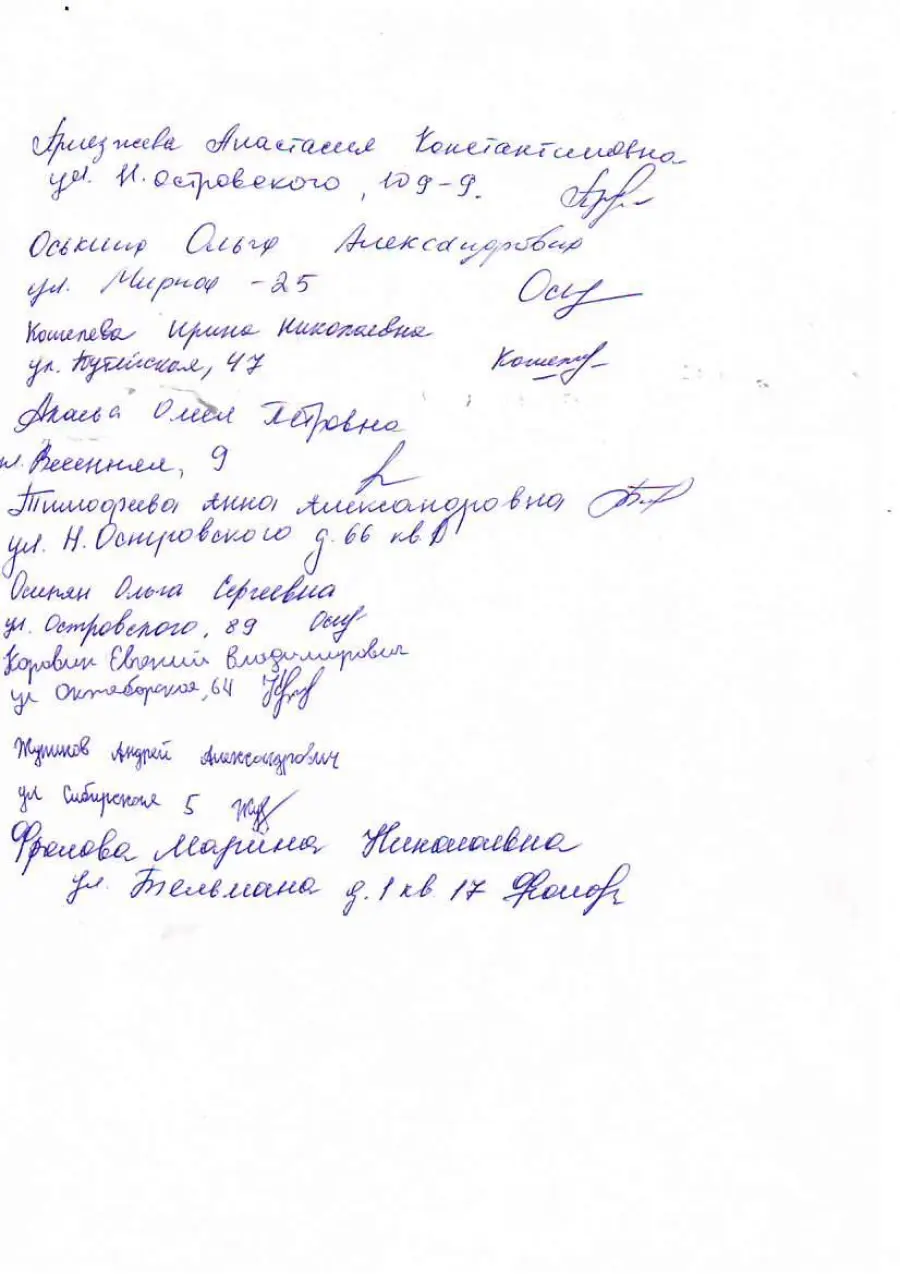 Анастасия Константиновна
ул. Н. островского, 109-9.
Ольга Александровна
ул. Мирная - 25
Кошелева Ирина Николаевна
ул. Путейская, 47
Петровна
ул. Весенняя, 9
Тимофеева Анна Александровна
ул. Н. Островского д. 66 кв.
Осипян Ольга Сергеевна
ул. Островского, 89
Коровин Евгений Владимирович
ул Октяборская, 64
Андрей Александрович
ул Сибирская 5
Фролова Марина Николаевна
ул. Тельмана д. 1 кв. 17